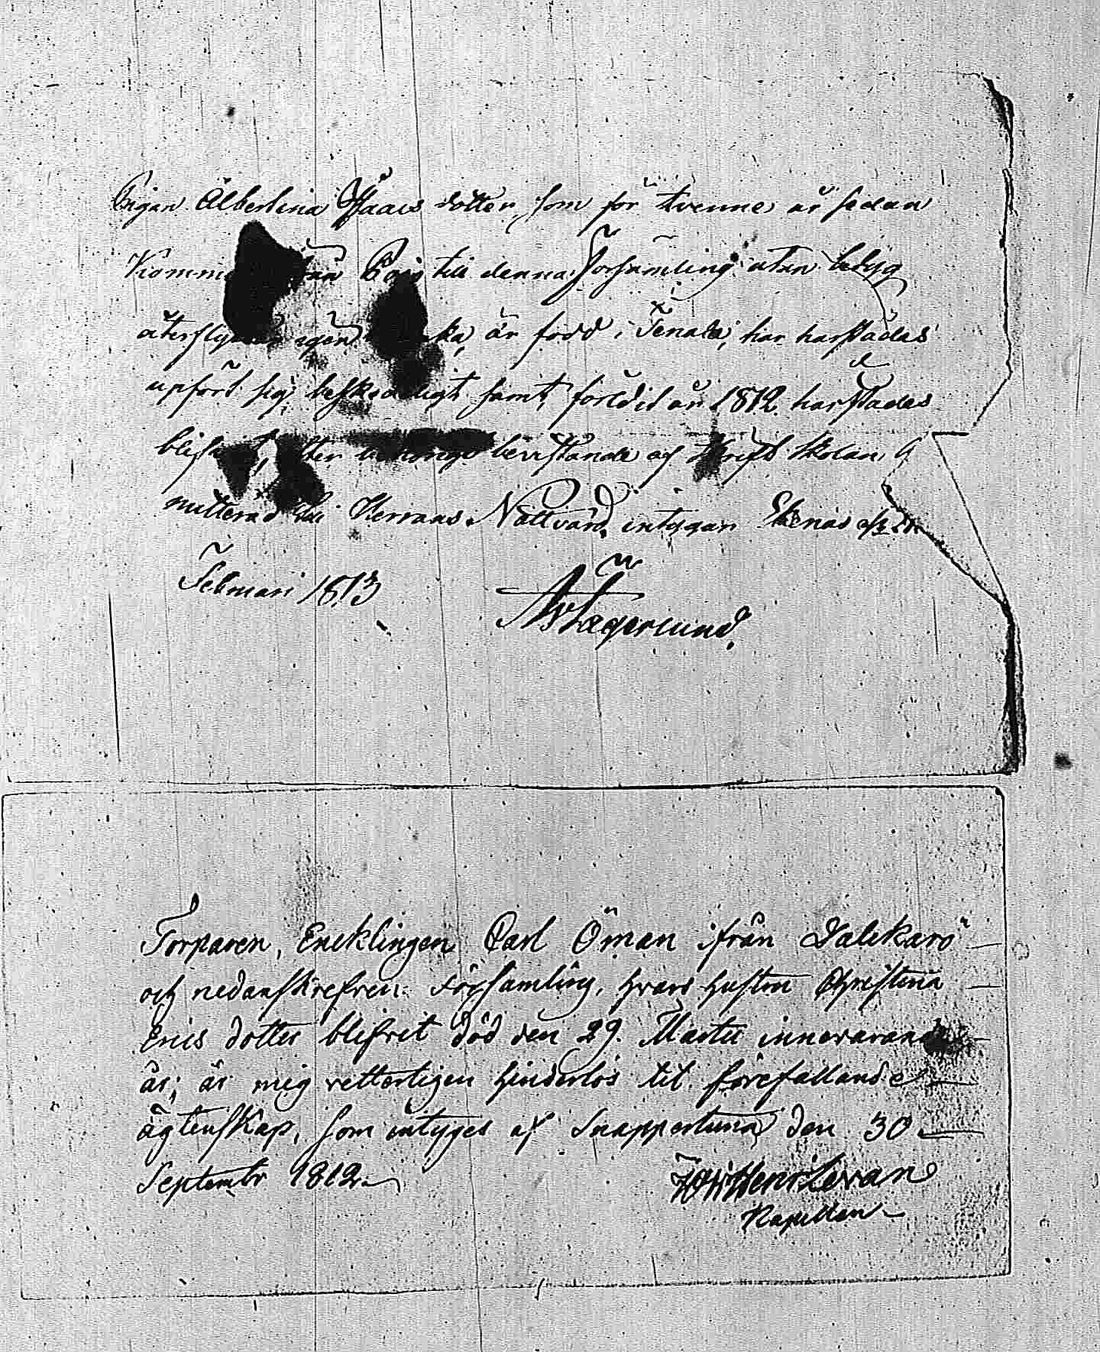 Pigan Albertina Isaacs dotter, som för tvenne år sedan
Komm från Pojo till denna Församling utan betyg
återflyt igen är född i Tenala, har härstädes
upfört sig beskedeligt samt förledit år 1812 härstädes
blif efter förstånd af skrift skolan
mitterad till Herrans Nattvard, intygar Ekenäs
Februari 1813
Lagerlund
Torparen, Encklingen Carl Öman ifrån Dalckarö
och nedanskrefven Församling, hvars hustru Christina
Erics dotter blifvit död den 29. Martii innevarande
år; är mig vetterligen hinderlös til förefallande
ägtenskap, som intyges af Snappertuna den 30
Septembr 1812
Levan
Kapellan